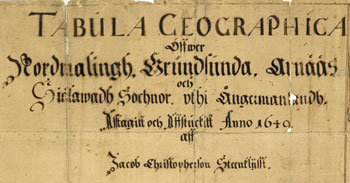 TABULA GEOGRAPHICA
Offwer
Nordmalingh, Grundsunda, Arnääs
och
Sochnor, vthi Ångermanlandh.
Affagitt och Affstuckitt Anno 1640
aff
Jacob Christopherson